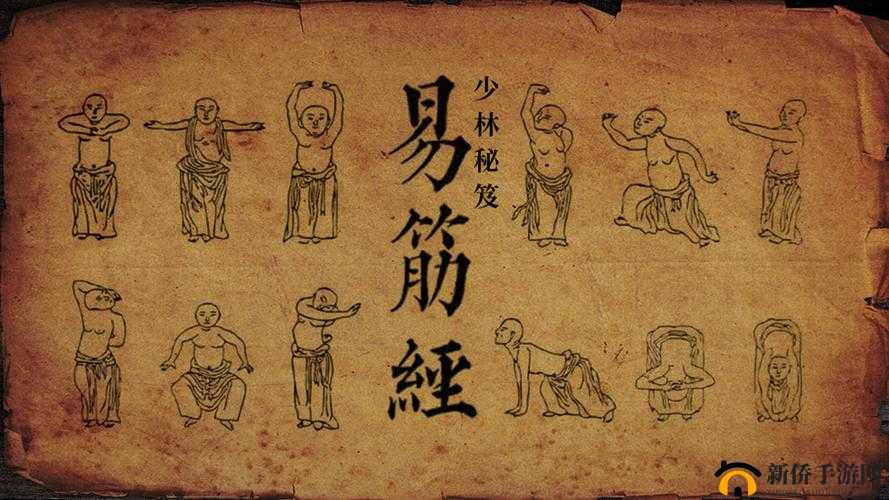 少林秘笈
易筋經
新侨手游网